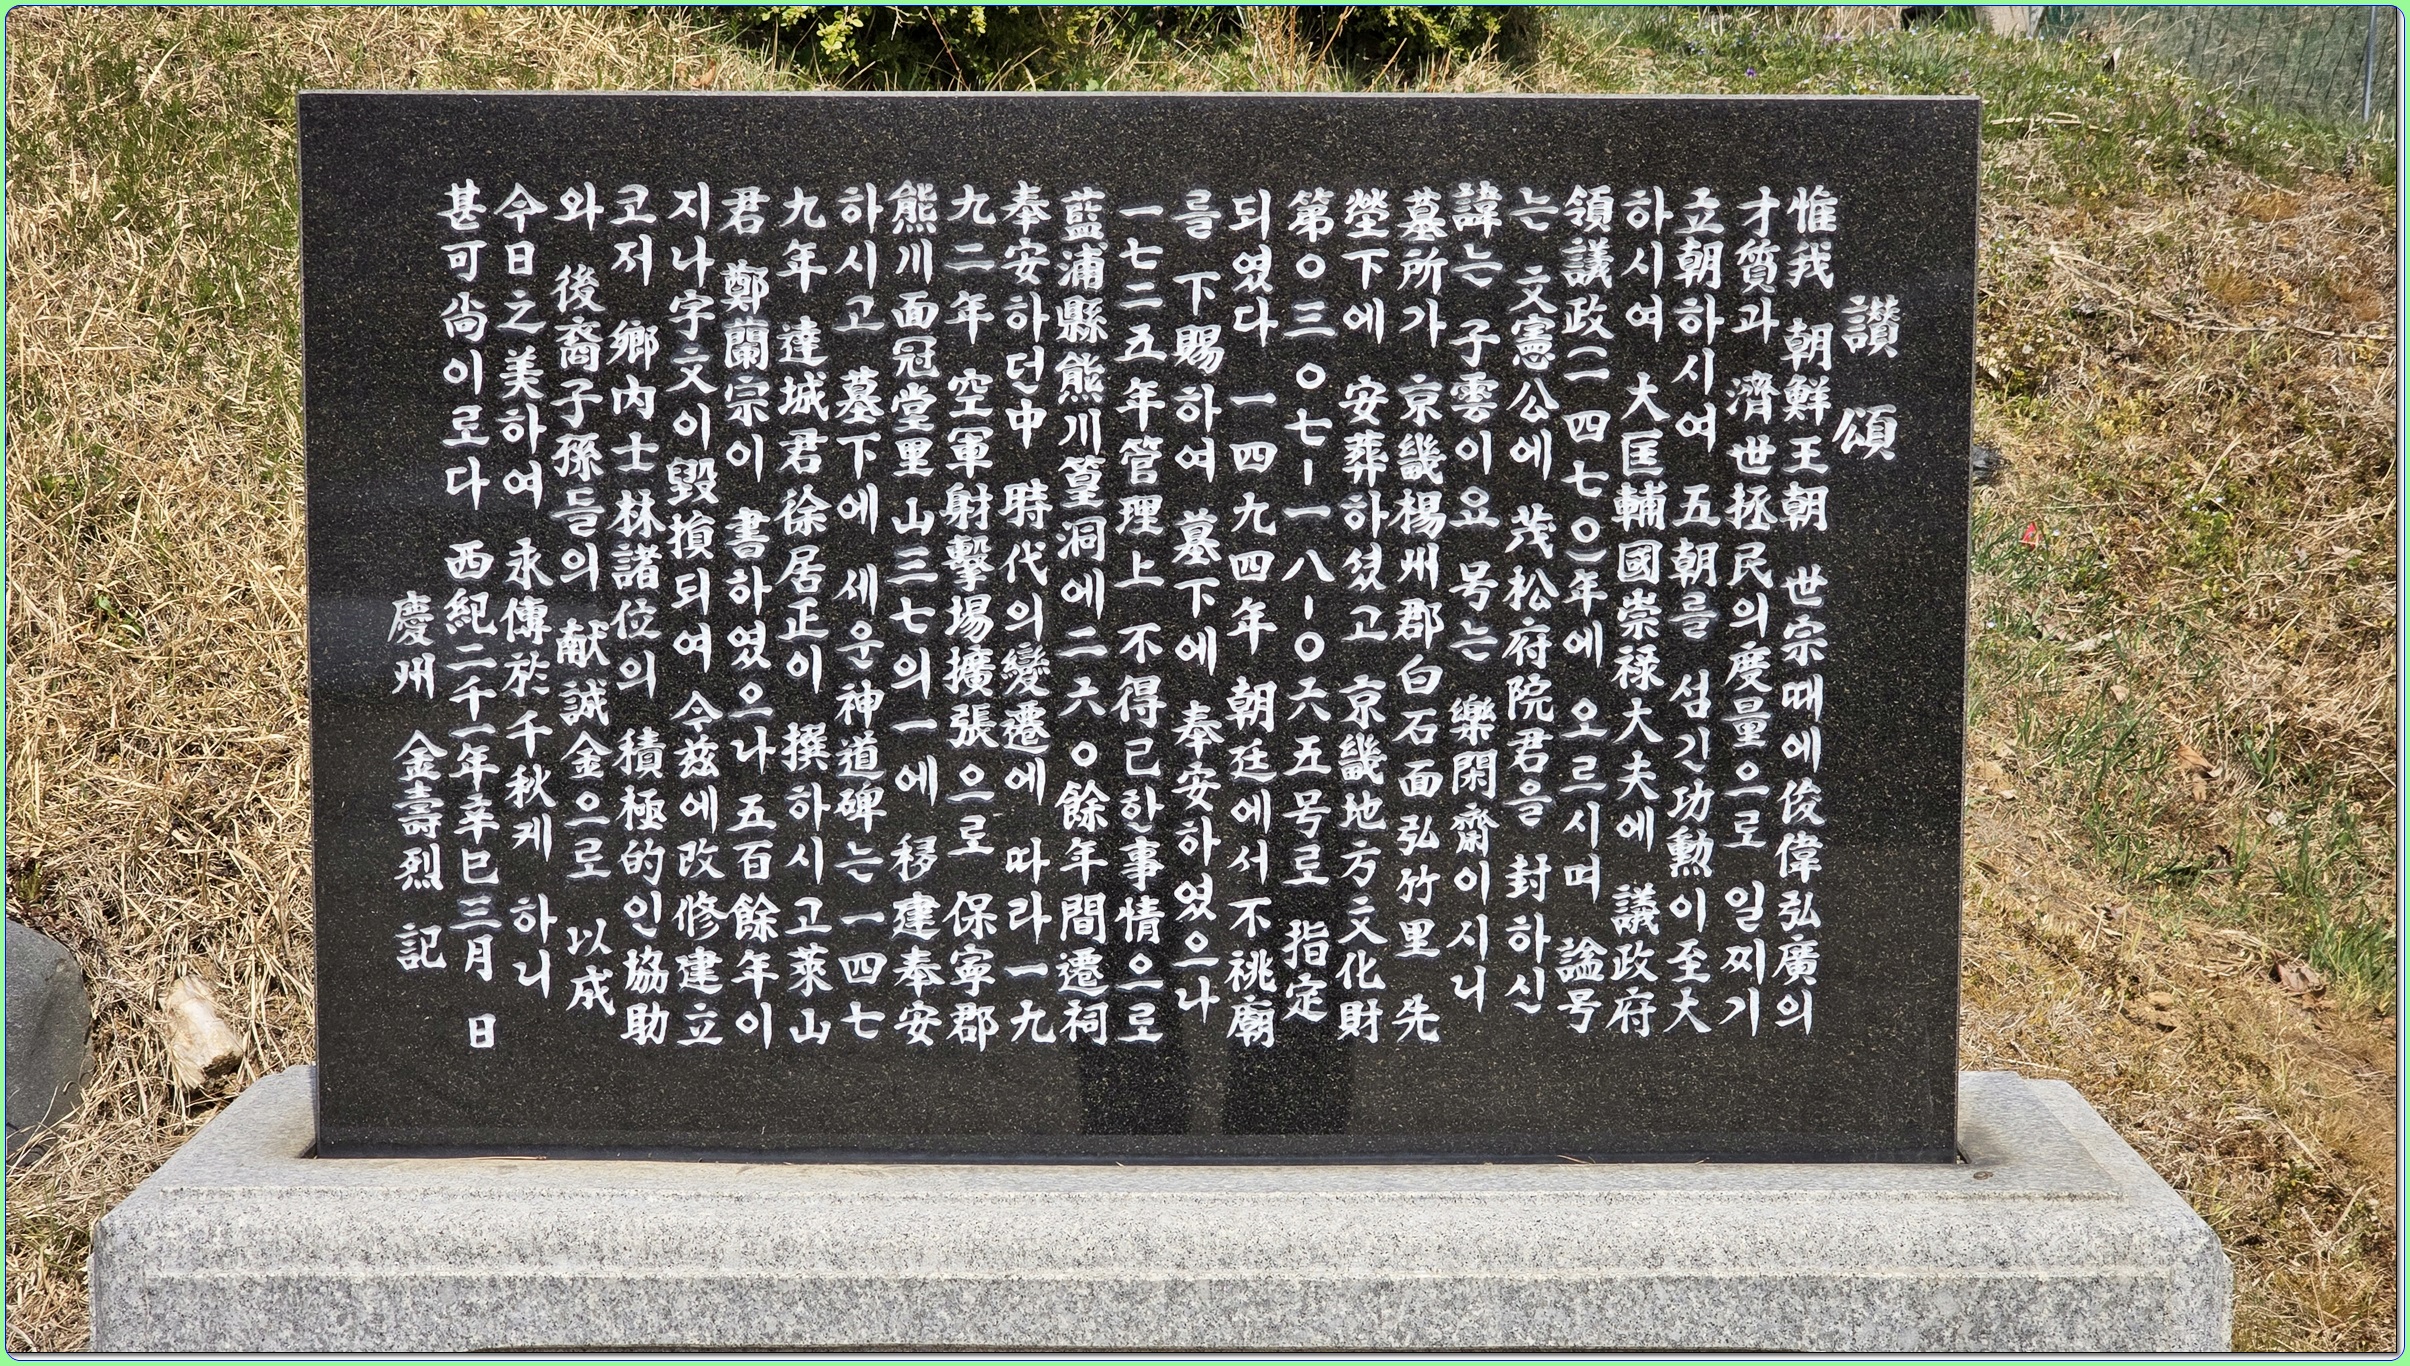 讚頌
惟我 朝鮮王朝 世宗때에 俊偉弘廣의
才質과 濟世拯民의 度量으로 일찌기
立朝하시여 五朝를 섬긴 功勳이 至大
하시여 大匡輔國崇禄大夫에 議政府
領議政(一四七○)年에 오르시며 諡号
는 文憲公에 茂松府院君을 封하신
諱는 子雲이요 号는 樂閑齋이시니
墓所가 京畿楊州郡白石面弘竹里 先
塋下에 安葬하셨고 京畿地方文化財
第○三○七-一八-○六五号로 指定
되였다 一四九四年 朝廷에서 不祧廟
를 下賜하여 墓下에 奉安하였으나
一七二五年管理上 不得已한事情으로
藍浦縣熊川篁洞에 二六○餘年間遷祠
奉安하던中 時代의變遷에 따라 一九
九二年 空軍射擊場擴張으로 保寧郡
熊川面冠堂里山三七의一에 移建奉安
하시고 墓下에 세운神道碑는 一四七
九年 達城君徐居正이 撰하시고 萊山
君 鄭蘭宗이 書하였으나 五百餘年이
지나字文이 毀損되여 今玆에 改修建立
고저 鄕內士林諸位의 積極的인協助
와 後裔子孫들의 献誠金으로 以成
今日之美하여 永傳於千秋케 하니
甚可尙이로다 西紀二千一年辛巳三月 日
慶州 金壽烈 記